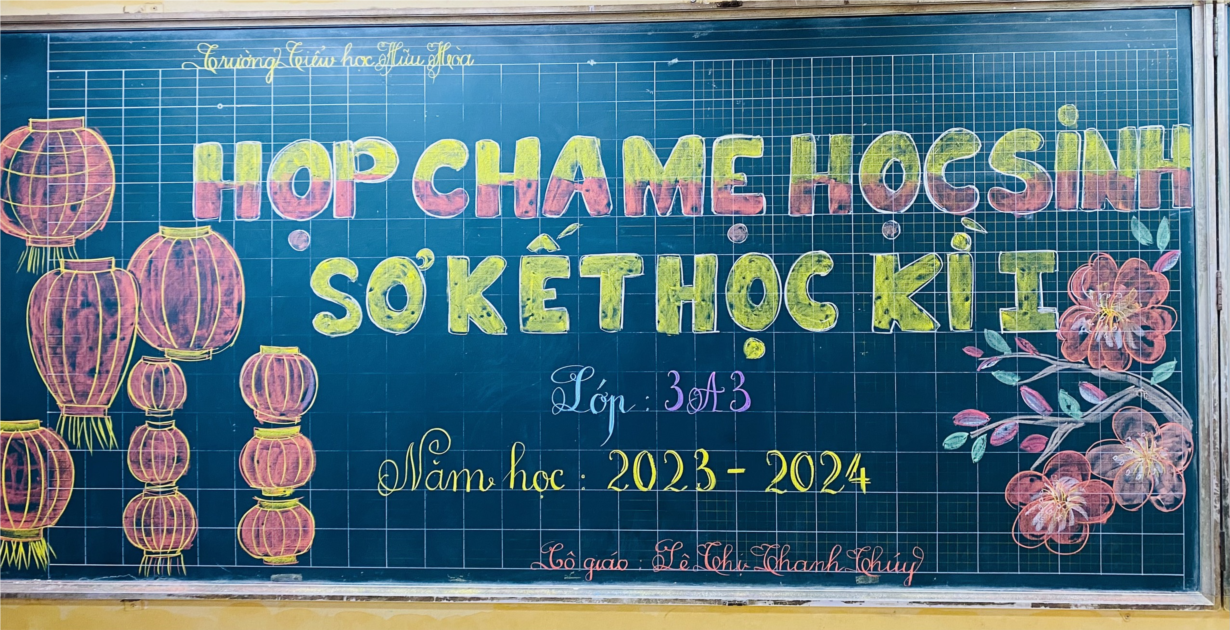 Trường Tiểu học Hữu Hòa
HỌP CHA MẸ HỌC SINH
SƠ KẾT HỌC KÌ I
Lớp : 3A3
Năm học : 2023 - 2024
Cô giáo : Lê Thị Thanh Thúy